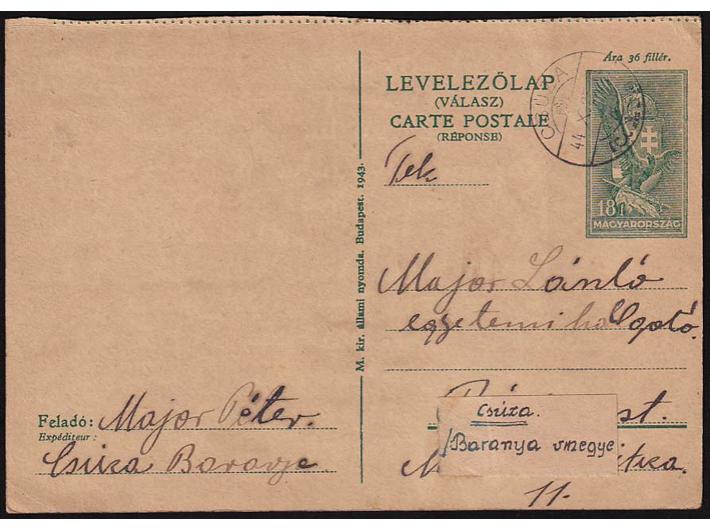 Ára 36 fillér.
LEVELEZŐLAP
(VÁLASZ)
CARTE POSTALE
(RÉPONSE)
CSUZA
44 X
18f
MAGYARORSZÁG
Tek
Major László
egyetemi hallgató.
st.
Csúza.
/Baranya vmegye
11.
M. kir. állami nyomda. Budapest. 1943.
Feladó: Major Péter.
Expéditeur:
Csúza Baranya